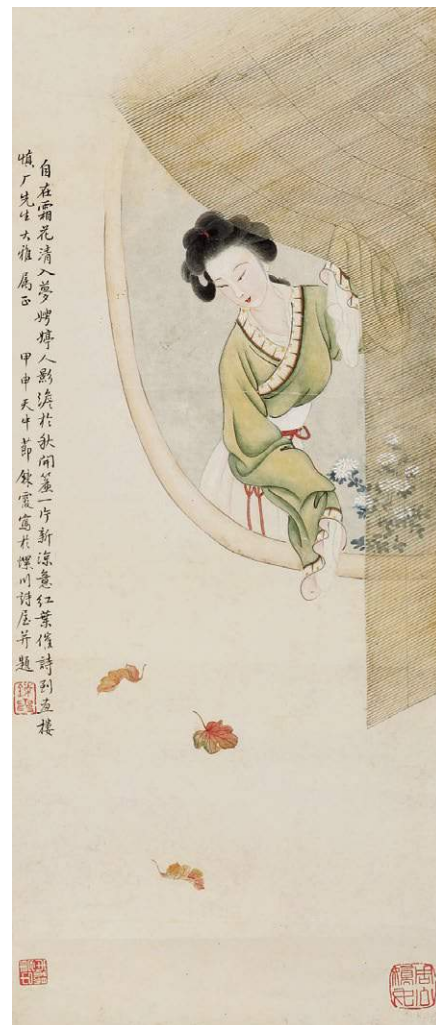 自在霜花清入夢娉婷人影澹於秋開簾一片新涼意紅葉催詩到畫樓
慎厂先生大雅屬正 甲申天中節 鍊霞寫於螺川詩屋并題